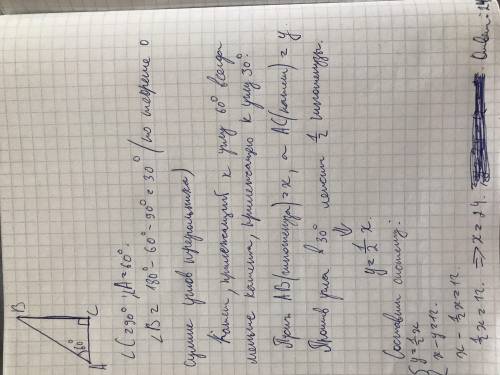 B
60°
A
C
∠C=90°; ∠A=60°.
∠B = 180°-60°-90°=30° (по теореме о
сумме углов треугольника)
Катет, прилежащий к углу 60° всегда
меньше катета, прилежащего к углу 30°.
Пусть AB(гипотенуза)=x, а AC(катет)=y.
Против угла в 30° лежит 1/2 гипотенузы.
⇓
y=1/2 x.
Составим систему:
{ y=1/2 x
x-y=12.
x-1/2 x=12
1/2 x=12. ⇒ x=24. Ответ: 24